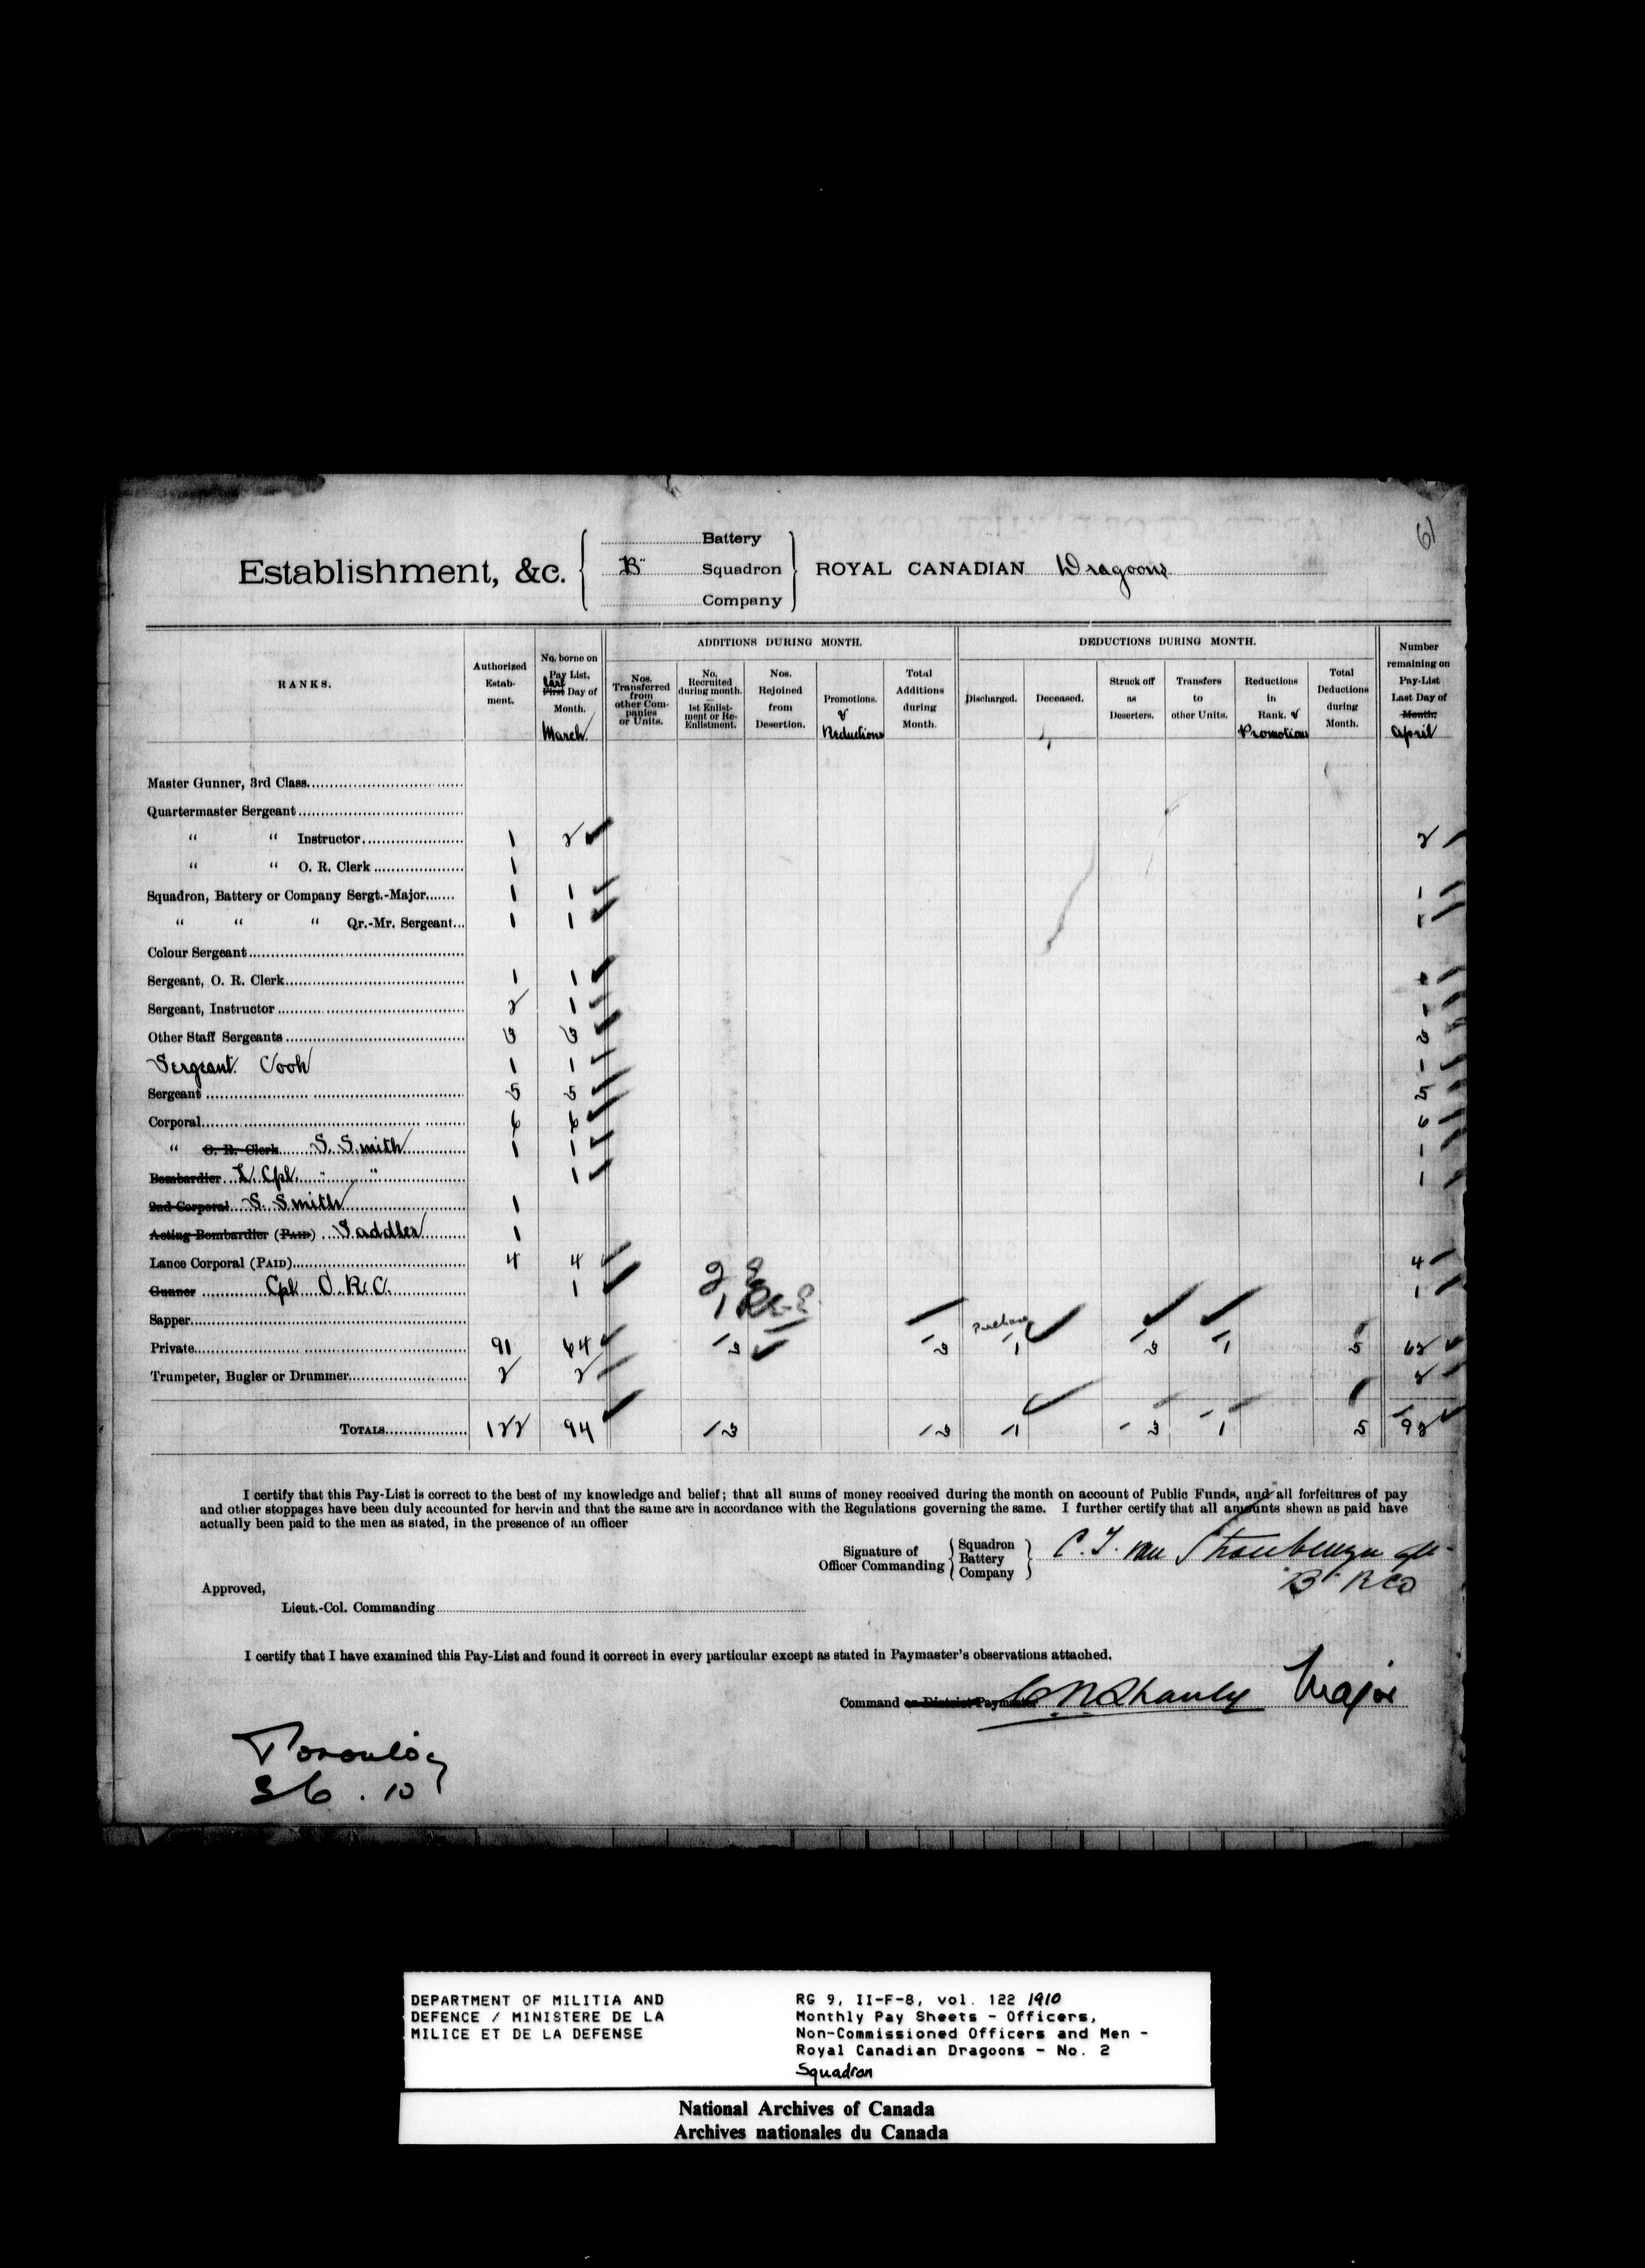 61
Battery
Establishment, &c. "B" Squadron ROYAL CANADIAN Dragoons
Company
RANKS.
Authorized Estab- ment.
No. borne on Pay List, Last First Day of Month. March
ADDITIONS DURING MONTH.
Nos. Transferred from other Com- panies or Units.
No. Recruited during month. 1st Enlist- ment or Re- Enlistment.
Nos. Rejoined from Desertion.
Promotions. & Reductions
Total Additions during Month.
DEDUCTIONS DURING MONTH.
Discharged.
Deceased.
Struck off as Deserters.
Transfers to other Units.
Reductions in Rank. & Promotions
Total Deductions during Month.
Number remaining on Pay-List Last Day of Month. April
Master Gunner, 3rd Class
Quartermaster Sergeant
" " Instructor 1 2 2
" " O. R. Clerk 1
Squadron, Battery or Company Sergt.-Major 1 1 1
" " " Qr.-Mr. Sergeant 1 1 1
Colour Sergeant
Sergeant, O. R. Clerk 1 1 1
Sergeant, Instructor 2 1 1
Other Staff Sergeants 3 3 3
Sergeant Cook 1 1 1
Sergeant 5 5 5
Corporal 6 6 6
" O. R. Clerk S. Smith 1 1 1
Bombardier L. Cpl. " " 1 1
2nd Corporal S. Smith 1
Acting Bombardier (PAID) Saddler 1
Lance Corporal (PAID) 4 4 4
2 E
Gunner Cpl O.R.C. 1 1
1 Re-E
Sapper
Purchase
Private 91 64 3 3 1 3 1 5 62
Trumpeter, Bugler or Drummer 2 2 2
TOTALS 122 94 3 3 1 3 1 5 92
I certify that this Pay-List is correct to the best of my knowledge and belief; that all sums of money received during the month on account of Public Funds, and all forfeitures of pay
and other stoppages have been duly accounted for herein and that the same are in accordance with the Regulations governing the same. I further certify that all amounts shewn as paid have
actually been paid to the men as stated, in the presence of an officer
Signature of Officer Commanding
Squadron
Battery
Company
C. T. van Straubenzee
"B" RCD
Approved,
Lieut.-Col. Commanding
I certify that I have examined this Pay-List and found it correct in every particular except as stated in Paymaster's observations attached.
Command or District Paymaster C N Shanly Major
Toronto
3 6 . 10
DEPARTMENT OF MILITIA AND
DEFENCE / MINISTERE DE LA
MILICE ET DE LA DEFENSE
RG 9, II-F-8, vol. 122 1910
Monthly Pay Sheets - Officers,
Non-Commissioned Officers and Men -
Royal Canadian Dragoons - No. 2
Squadron
National Archives of Canada
Archives nationales du Canada